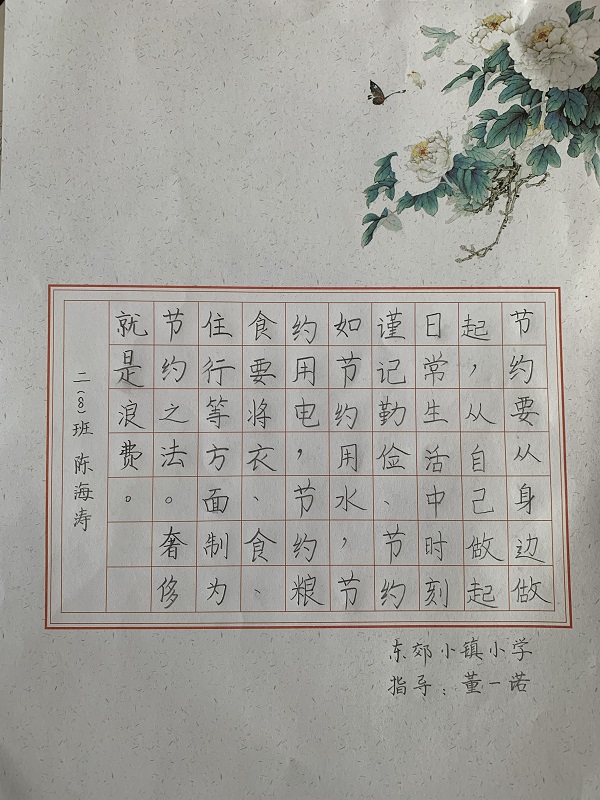 节约要从身边做
起，从自己做起
日常生活中时刻
谨记勤俭、节约
如节约用水，节
约用电，节约粮
食要将衣、食、
住行等方面制为
节约之法。奢侈
就是浪费。
二(8)班 陈海涛
东郊小镇小学
指导：董一诺